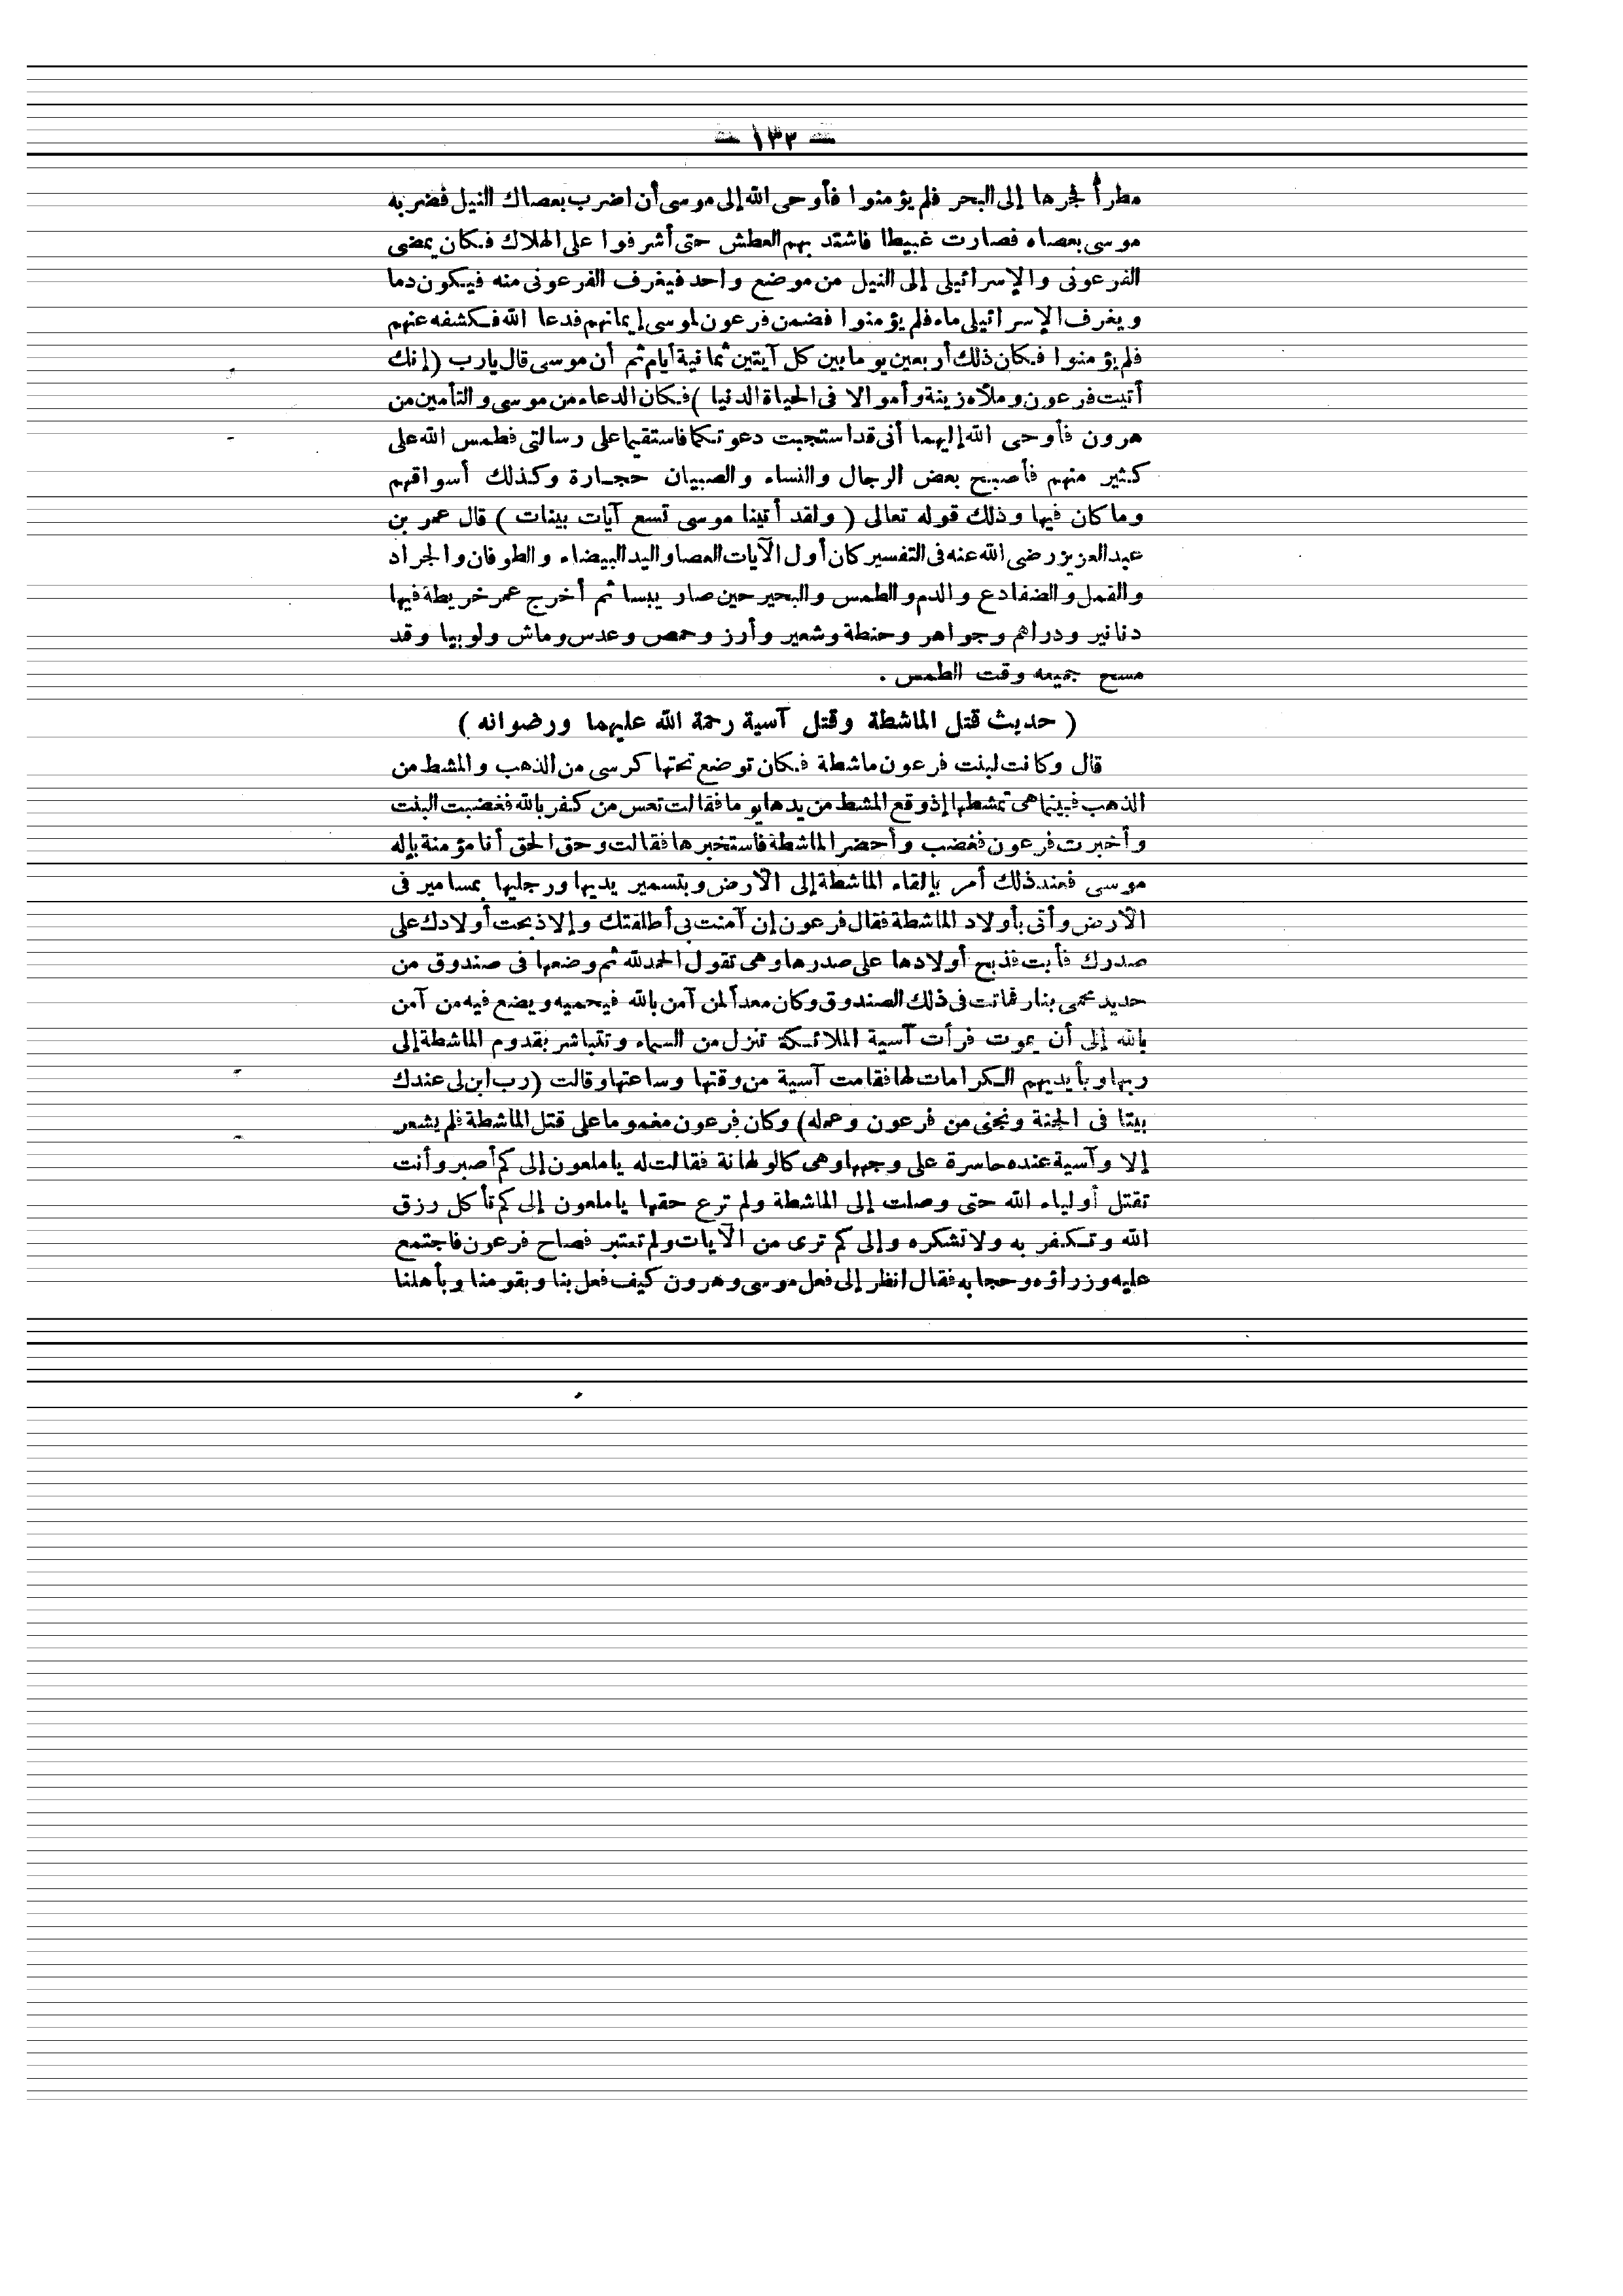 — ١٣٢ —
مطرأ فجرها إلى البحر فلم يؤمنوا فأوحى الله إلى موسى أن اضرب بعصاك النيل فضربه
موسى بعصاه فصارت غبيطا فاشتد بهم العطش حتى أشرفوا على الهلاك فكان يمضى
الفرعونى والإسرائيلى إلى النيل من موضع واحد فيغرف الفرعونى منه فيكون دما
ويغرف الإسرائيلى ماء فلم يؤمنوا فضمن فرعون لموسى إيمانهم فدعا الله فكشفه عنهم
فلم يؤمنوا فكان ذلك أربعين يوما بين كل آيتين ثمانية أيام ثم أن موسى قال يارب (إنك
أتيت فرعون وملأه زينة وأموالا فى الحياة الدنيا ) فكان الدعاء من موسى والتأمين من
هرون فأوحى الله إليهما أنى قد استجبت دعوتكما فاستقيما على رسالتى فطمس الله على
كثير منهم فأصبح بعض الرجال والنساء والصبيان حجارة وكذلك أسواقهم
وما كان فيها وذلك قوله تعالى ( ولقد أتينا موسى تسع آيات بينات ) قال عمر بن
عبد العزيز رضى الله عنه فى التفسير كان أول الآيات العصا واليد البيضاء والطوفان والجراد
والقمل والضفادع والدم والطمس والبحير حين صار يبسا ثم أخرج عمر خريطة فيها
دنانير ودراهم وجواهر وحنطة وشعير وأرز وحمص وعدس وماش ولوبيا وقد
مسح جميعه وقت الطمس .
( حديث قتل الماشطة وقتل آسية رحمة الله عليهما ورضوانه )
قال وكانت لبنت فرعون ماشطة فكان توضع تحتها كرسى من الذهب والمشط من
الذهب فبينما هى تمشطها إذ وقع المشط من يدها يوما فقالت تعس من كفر بالله فغضبت البنت
وأخبرت فرعون فغضب وأحضر الماشطة فاستخبرها فقالت وحق الحق أنا مؤمنة بإله
موسى فعند ذلك أمر بإلقاء الماشطة إلى الأرض وبتسمير يديها ورجليها بمسامير فى
الأرض وأتى بأولاد الماشطة فقال فرعون إن آمنت بى أطلقتك وإلا ذبحت أولادك على
صدرك فأبت فذبح أولادها على صدرها وهى تقول الحمد لله ثم وضعها فى صندوق من
حديد محمى بنار فماتت فى ذلك الصندوق وكان معدأ لمن آمن بالله فيحميه ويضع فيه من آمن
بالله إلى أن يموت فرأت آسية الملائكة تنزل من السماء وتتباشر بقدوم الماشطة إلى
ربها وبأيديهم الكرامات لها فقامت آسية من وقتها وساعتها وقالت (رب ابن لى عندك
بيتا فى الجنة ونجنى من فرعون وعمله) وكان فرعون مغموما على قتل الماشطة فلم يشعر
إلا وآسية عنده حاسرة على وجهها وهى كالولهانة فقالت له ياملعون إلى كم أصبر وأنت
تقتل أولياء الله حتى وصلت إلى الماشطة ولم ترع حقها ياملعون إلى كم تأكل رزق
الله وتكفر به ولا تشكره وإلى كم ترى من الآيات ولم تعتبر فصاح فرعون فاجتمع
عليه وزراؤه وحجابه فقال انظر إلى فعل موسى وهرون كيف فعل بنا وبقومنا وبأهلنا